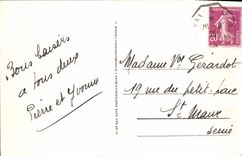 Bons baisers
à tous deux
Pierre et Yvonne
Madame Vve Gerardot
19 rue du petit-parc
St Maur
Seine